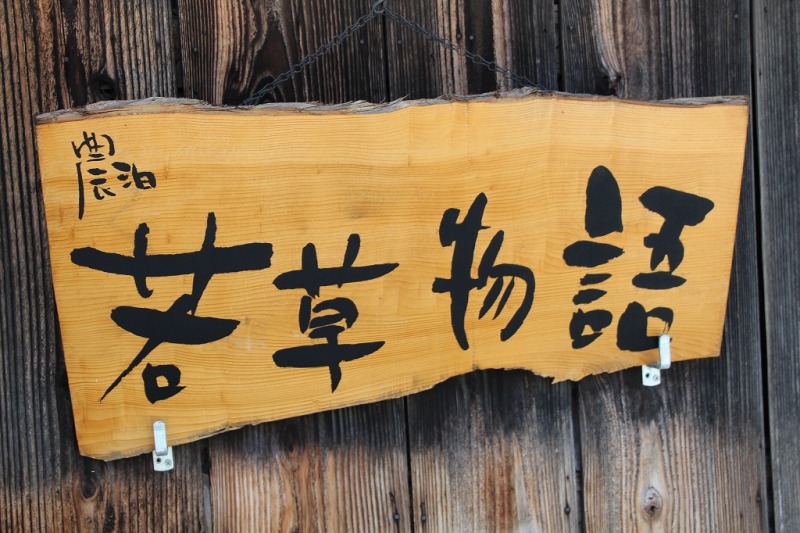 農泊
若草物語